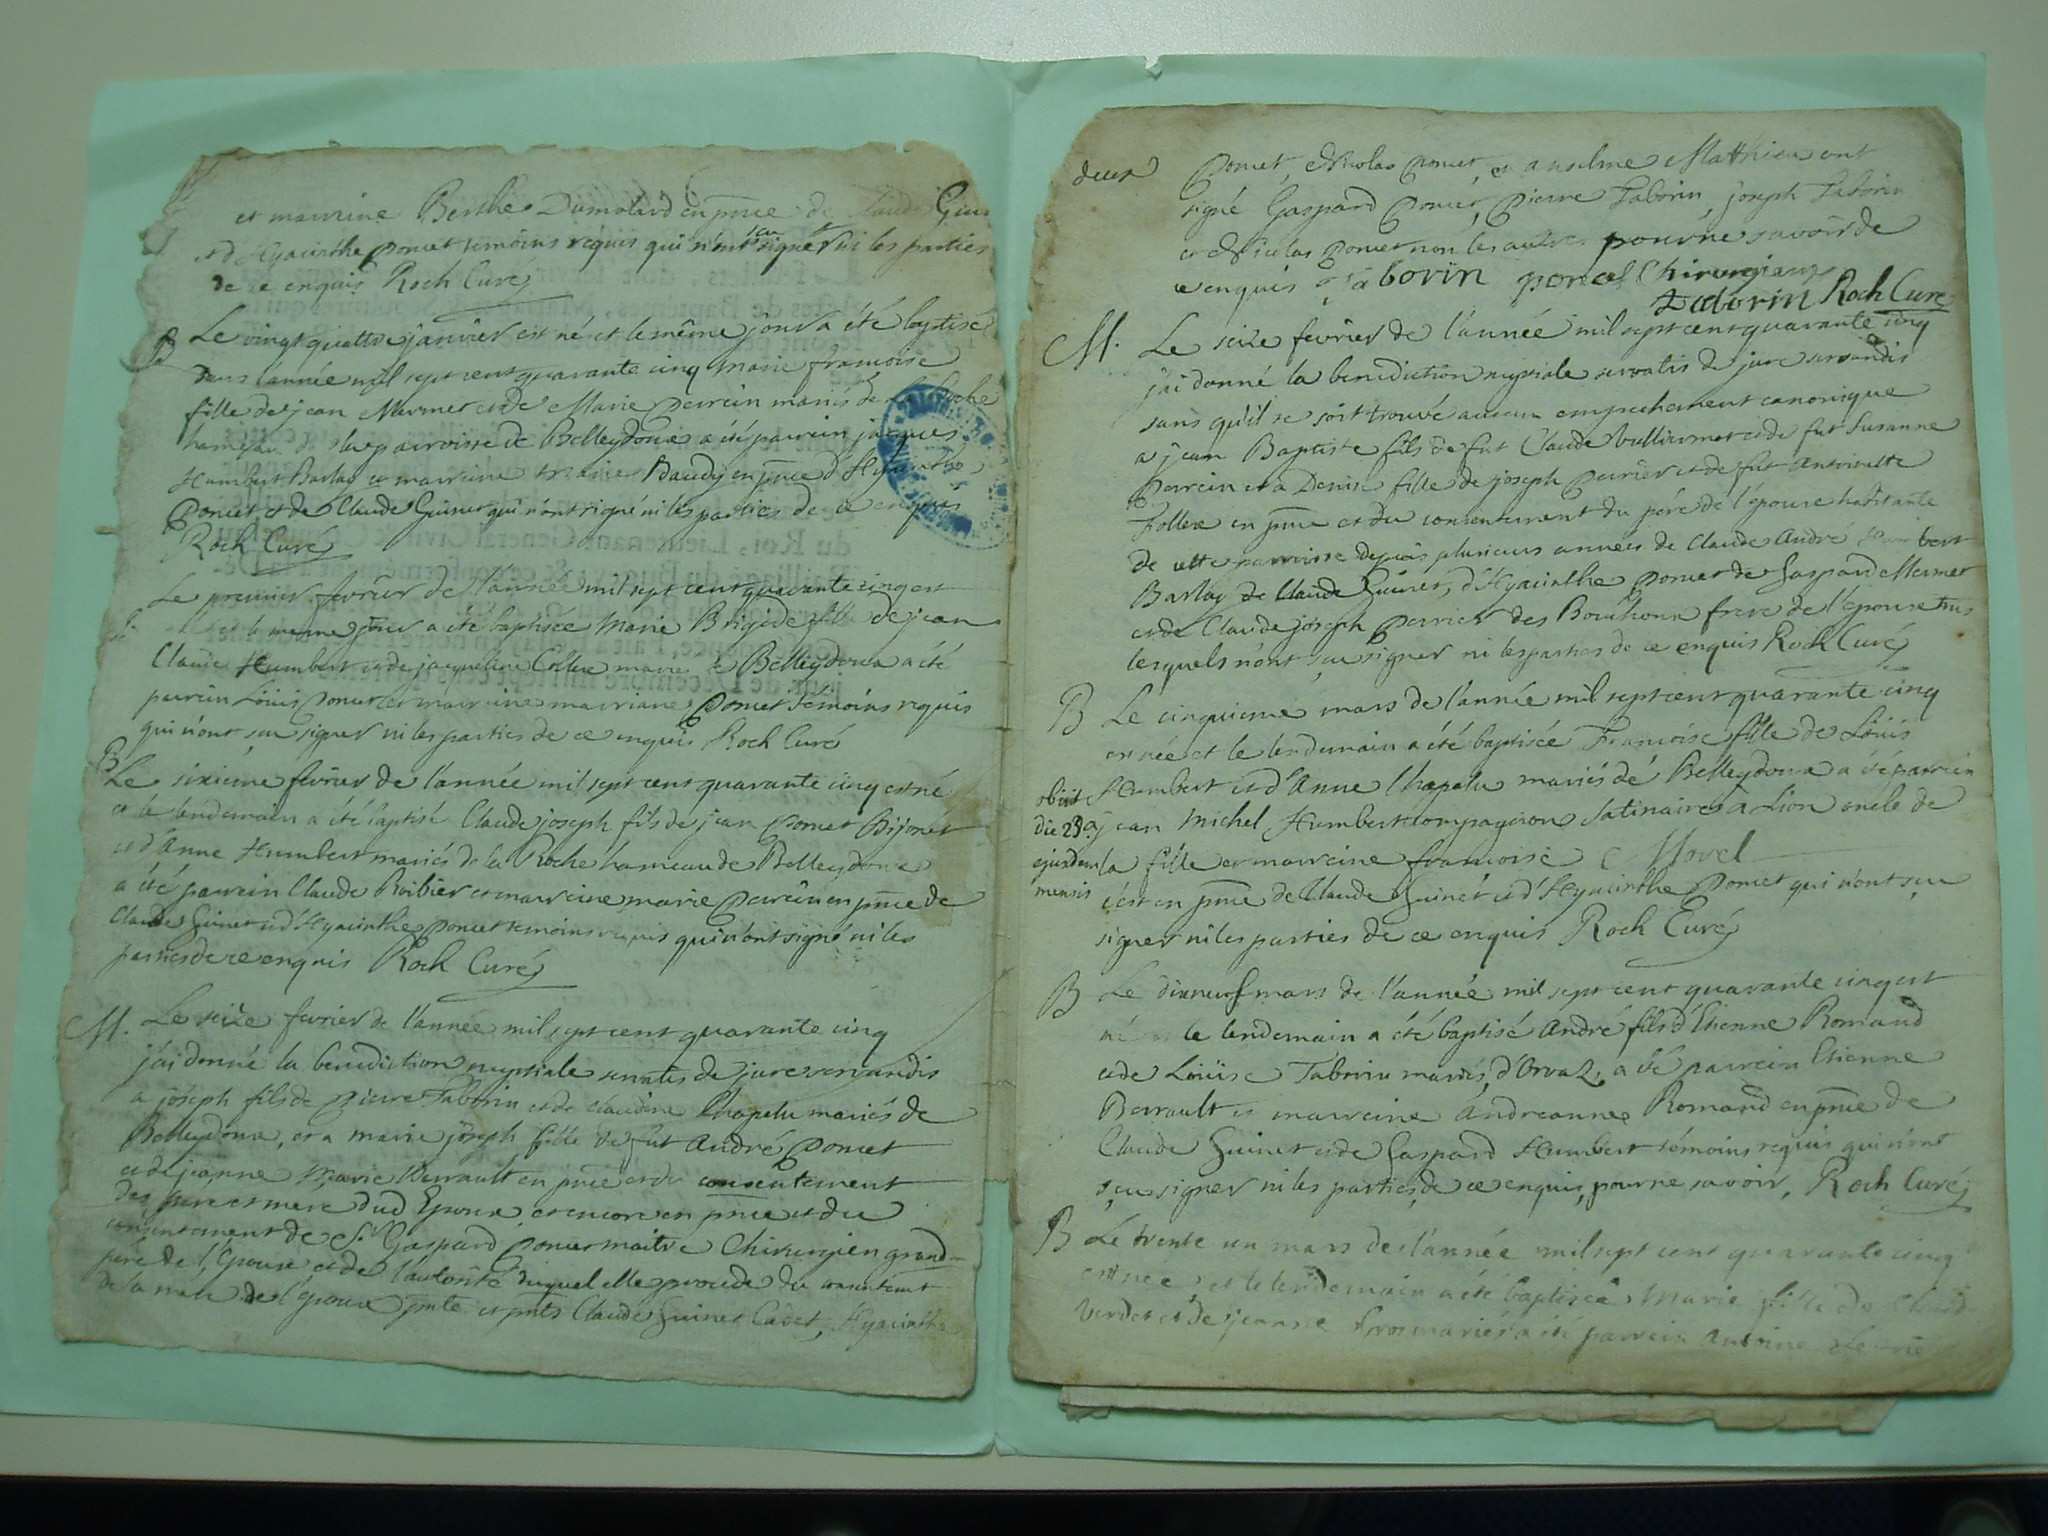 et marrine Berthe Dumolard en pnce de Claude Guin
et d'Hyacinthe Poncet temoins requis qui n'ont sçu signer ni les parties
de ce enquis Roch Curé
B Le vingt quattre janvier est né et le même jour a été baptisé
dans l'année mil sept cent quarante cinq marie francoise
fille de jean Mermet et de Marie Perrein mariés de la Roche
hameau de la paroisse de Belleydoux a été parrein jacques
Humbert Barlay et marreine marie Baudy en pnce d'Hyacinthe
Poncet et de Claude Guinet qui n'ont signé ni les parties de ce enquis
Roch Curé
Le premier fevrier de l'année mil sept cent quarante cinq est
et le meme jour a été baptisée Marie Brigide fille de jean
Claude Humbert et de jacqueline Collex maries de Belleydoux a été
parrein Loüis Poncet et marreine marriane Poncet témoins requis
qui n'ont sçu signer ni les parties de ce enquis Roch Curé
B Le sixieme fevrier de l'année mil sept cent quarante cinq est né
et le lendemain a été baptisé Claude joseph fils de jean Poncet Bijonet
et d'Anne Humbert mariés de la Roche hameau de Belleydoux
a été parrein Claude Roibier et marreine marie Perrein en pnce de
Claude Guinet et d'Hyacinthe Poncet temoins requis qui n'ont signé ni les
parties de ce enquis Roch Curé
M. Le seize fevrier de l'année mil sept cent quarante cinq
j'ai donné la benediction nuptiale servatis de jure servandis
a joseph fils de Pierre Taborin et de Claudine Chapelu mariés de
Belleydoux, et a marie joseph fille de fut André Poncet
et de jeanne Marie Perrault en pnce et du consentement
des pere et mere dud Epoux et encore en pnce et du
consentement de Sr Gaspard Poncet maitre Chirurgien grand
pere de l'Epouse et de l'autorité duquel elle procede du consentemt
de la mere de l'epouse pnte et pnts Claude Guinet Cadet, Hyacinthe
deux Poncet, Nicolas Poncet, et Anselme Matthieu ont
signé Gaspard Poncet, Pierre Taborin, joseph Taborin
et Nicolas Poncet non les autres pour ne savoir de
ce enquis Taborin poncet Chirurgien
Taborin Roch Curé
M. Le seize fevrier de l'année mil sept cent quarante cinq
j'ai donné la benediction nuptiale servatis de jure servandis
sans qu'il se soit trouvé aucun empechement canonique
a jean Baptiste fils de fut Claude Vulliermet et de fut Susanne
Perrein et a Denise fille de joseph Perrier et de fut Antoinette
Follex en pnce et du consentement du pére de l'épouse habitante
de cette parroisse depuis plusieurs années de Claude André Humbert
Barlay de Claude Guinet, d'Hyacinthe Poncet de Gaspard Mermet
et de Claude joseph Perrier des Bouchoux frere de l'épouse tms
lesquels n'ont sçu signer ni les parties de ce enquis Roch Curé
B Le cinquieme mars de l'année mil sept cent quarante cinq
est née et le lendemain a été baptisée Francoise fille de Loüis
Humbert et d'Anne Chapelu mariés de Belleydoux a été parrein
obiit
die 23a
ejusdem
mensis
jean Michel Humbert compagnon Satinaire a Lion oncle de
la fille et marreine francoise Morel
c'est en pnce de Claude Guinet et d'Hyacinthe Poncet qui n'ont sçu
signer ni les parties de ce enquis Roch Curé
B Le dixneuf mars de l'année mil sept cent quarante cinq est
né et le lendemain a été baptisé André fils d'Etienne Romand
et de Loüise Taborin mariés d'Orvaz, a été parrein Etienne
Perrault et marreine Andreanne Romand en pnce de
Claude Guinet et de Gaspard Humbert témoins requis qui n'ont
sçu signer ni les parties de ce enquis pour ne savoir, Roch Curé
B Le trente un mars de l'année mil sept cent quarante cinq
est née, et le lendemain a été baptisée Marie fille de Claude
Verdet et de jeanne Gros mariés a été parrein Antoine